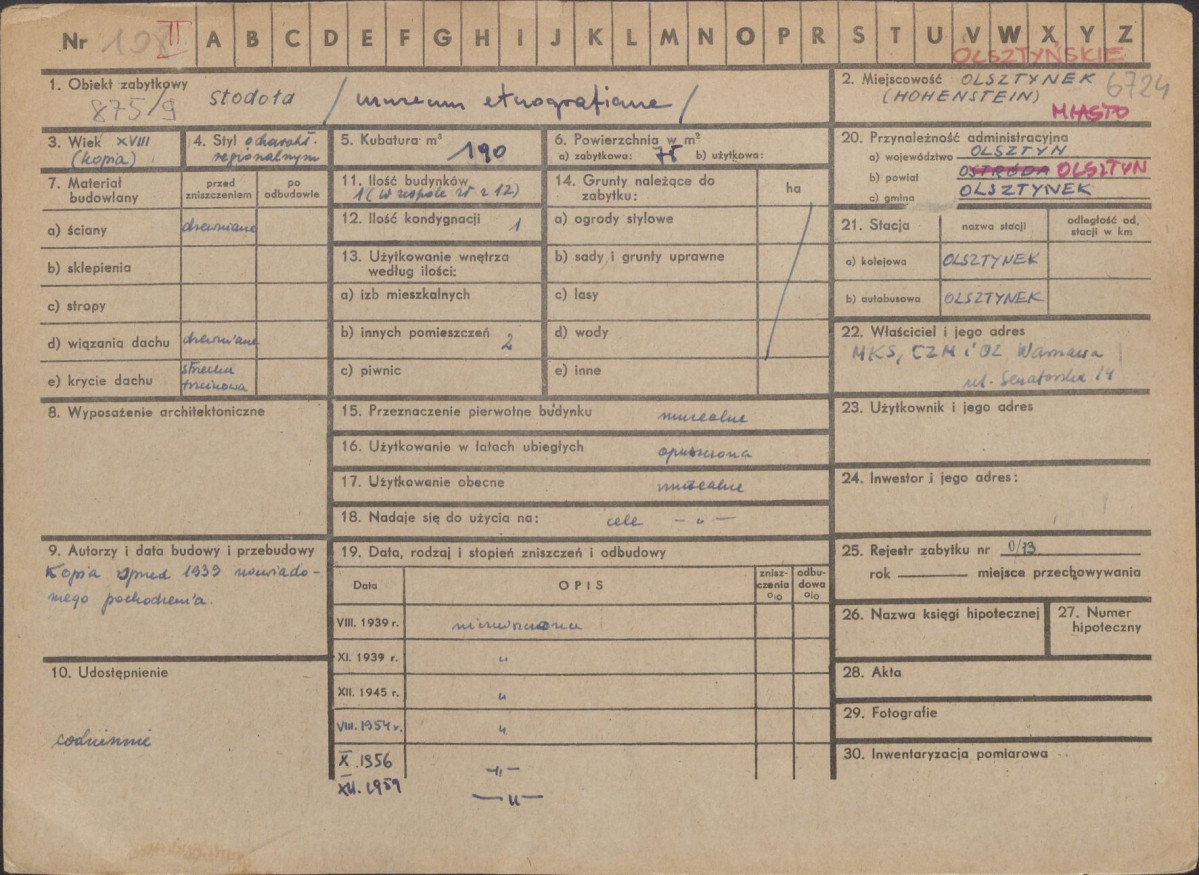 Nr 108 II A B C D E F G H I J K L M N O P R S T U V W X Y Z
OLSZTYŃSKIE
1. Obiekt zabytkowy
875/9 stodoła / muzeum etnograficzne /
2. Miejscowość OLSZTYNEK 6724
(HOHENSTEIN)
MIASTO
3. Wiek XVIII
(kopia)
4. Styl o charakt.
regionalnym
5. Kubatura m³
190
6. Powierzchnia w m²
a) zabytkowa: 75 b) użytkowa:
20. Przynależność administracyjna
a) województwo OLSZTYN
b) powiat OSTRÓDA OLSZTYN
c) gmina OLSZTYNEK
7. Materiał
budowlany
przed
zniszczeniem
po
odbudowie
a) ściany drewniane
b) sklepienia
c) stropy
d) wiązania dachu drewniane
e) krycie dachu strzecha
trzcinowa
11. Ilość budynków
1 (w zespole 25 z 12)
12. Ilość kondygnacji 1
13. Użytkowanie wnętrza
według ilości:
a) izb mieszkalnych
b) innych pomieszczeń 2
c) piwnic
14. Grunty należące do
zabytku:
ha
a) ogrody stylowe
b) sady i grunty uprawne
c) lasy
d) wody
e) inne
21. Stacja
nazwa stacji
odległość od
stacji w km
a) kolejowa OLSZTYNEK
b) autobusowa OLSZTYNEK
22. Właściciel i jego adres
MKS, CZM i OZ Warszawa
ul. Senatorska 14
8. Wyposażenie architektoniczne
15. Przeznaczenie pierwotne budynku muzealne
16. Użytkowanie w latach ubiegłych opuszczona
17. Użytkowanie obecne muzealne
18. Nadaje się do użycia na: cele — „ —
23. Użytkownik i jego adres
24. Inwestor i jego adres:
9. Autorzy i data budowy i przebudowy
Kopia sprzed 1939 niewiado-
mego pochodzenia.
19. Data, rodzaj i stopień zniszczeń i odbudowy
Data
OPIS
znisz-
czenia
%
odbu-
dowa
%
VIII. 1939 r. niezniszczona
XI. 1939 r. „
XII. 1945 r. „
VIII. 1954 r. „
X. 1956 — „ —
XII. 1959 — „ —
25. Rejestr zabytku nr 0/73
rok miejsce przechowywania
26. Nazwa księgi hipotecznej
27. Numer
hipoteczny
10. Udostępnienie
codziennie
28. Akta
29. Fotografie
30. Inwentaryzacja pomiarowa